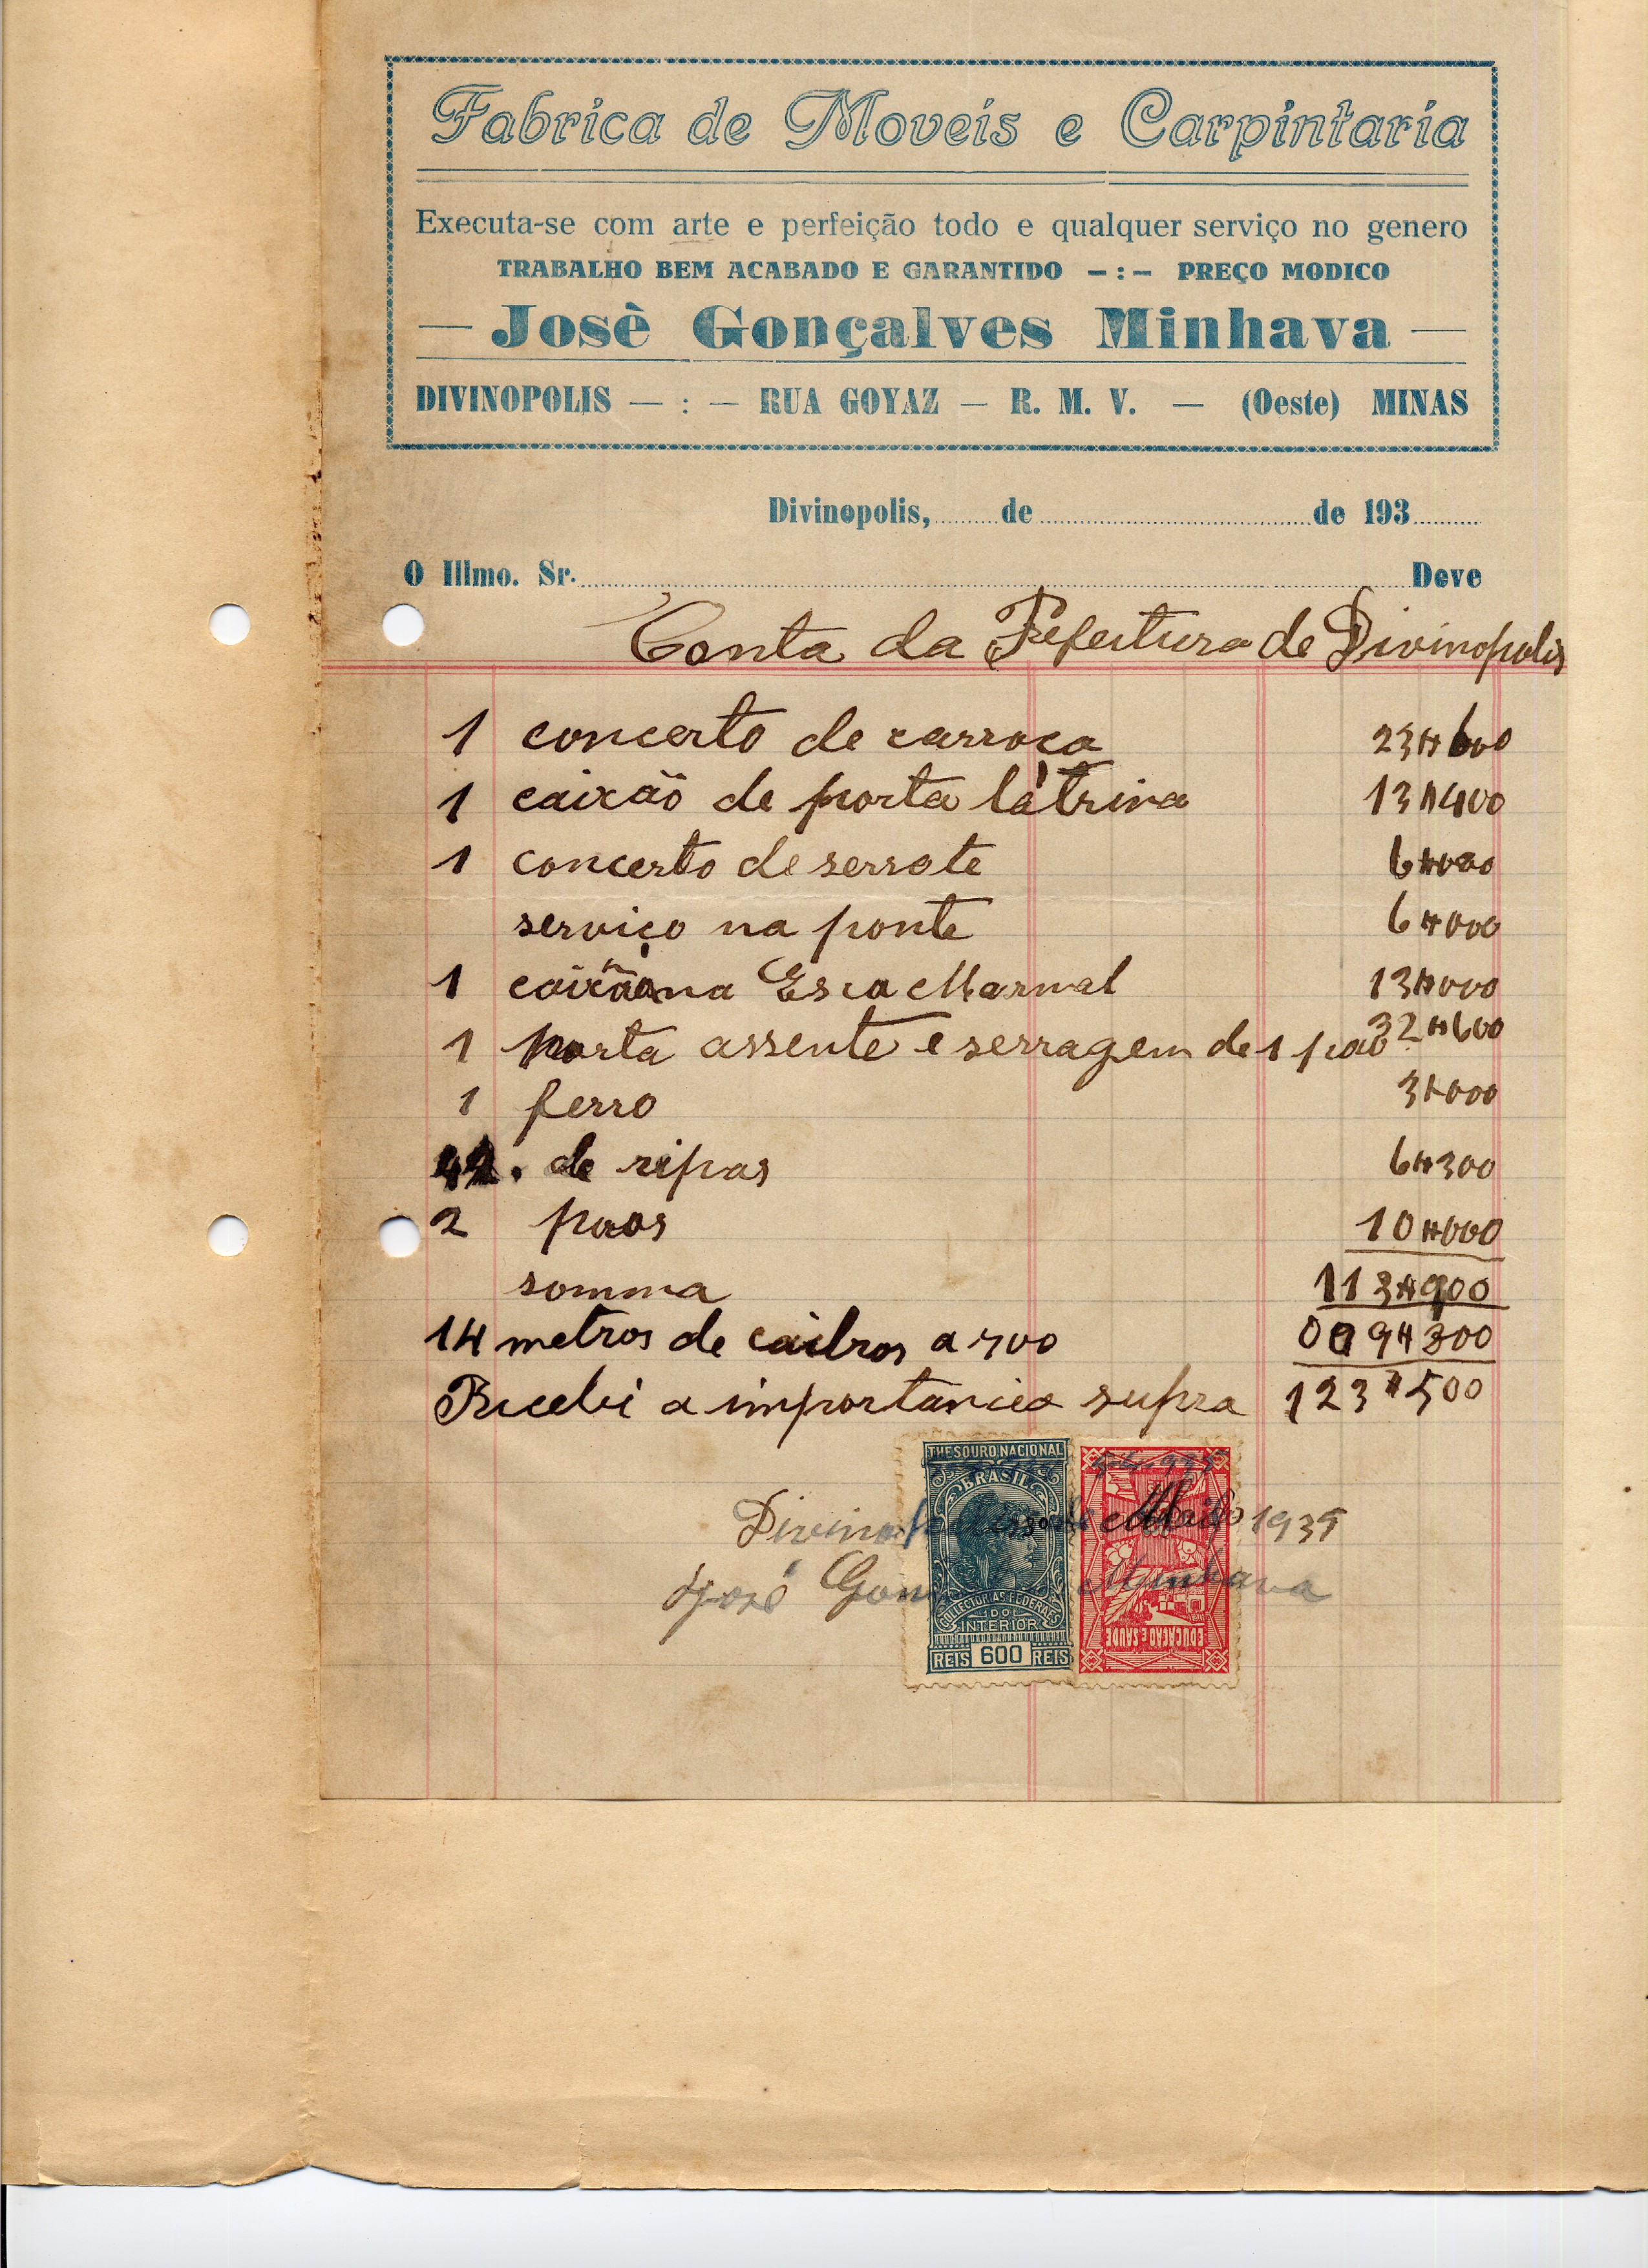 Fabrica de Moveis e Carpintaria
Executa-se com arte e perfeição todo e qualquer serviço no genero
TRABALHO BEM ACABADO E GARANTIDO —:— PREÇO MODICO
— Josè Gonçalves Minhava —
DIVINOPOLIS — : — RUA GOYAZ — R. M. V. — (Oeste) MINAS
Divinopolis, de de 193
O Illmo. Sr. Deve
Conta da Prefeitura de Divinopolis
1 concerto de carroça 23#600
1 caixão de porta latrina 13#400
1 concerto de serrote 6#000
serviço na ponte 6#000
1 caixão na Esca Marmal 13#000
1 porta assente e serragem de 1 pao 32#600
1 ferro 3#000
42. de ripas 6#300
2 paos 10#000
somma 113#900
14 metros de caibros a 700 009#800
Recebi a importancia supra 123#500
THESOURO NACIONAL
BRASIL
Divinopolis de 1935
José Gon Minhava
COLLECTORIAS FEDERAES
DO
INTERIOR
REIS 600 REIS
EDUCAÇÃO E SAUDE